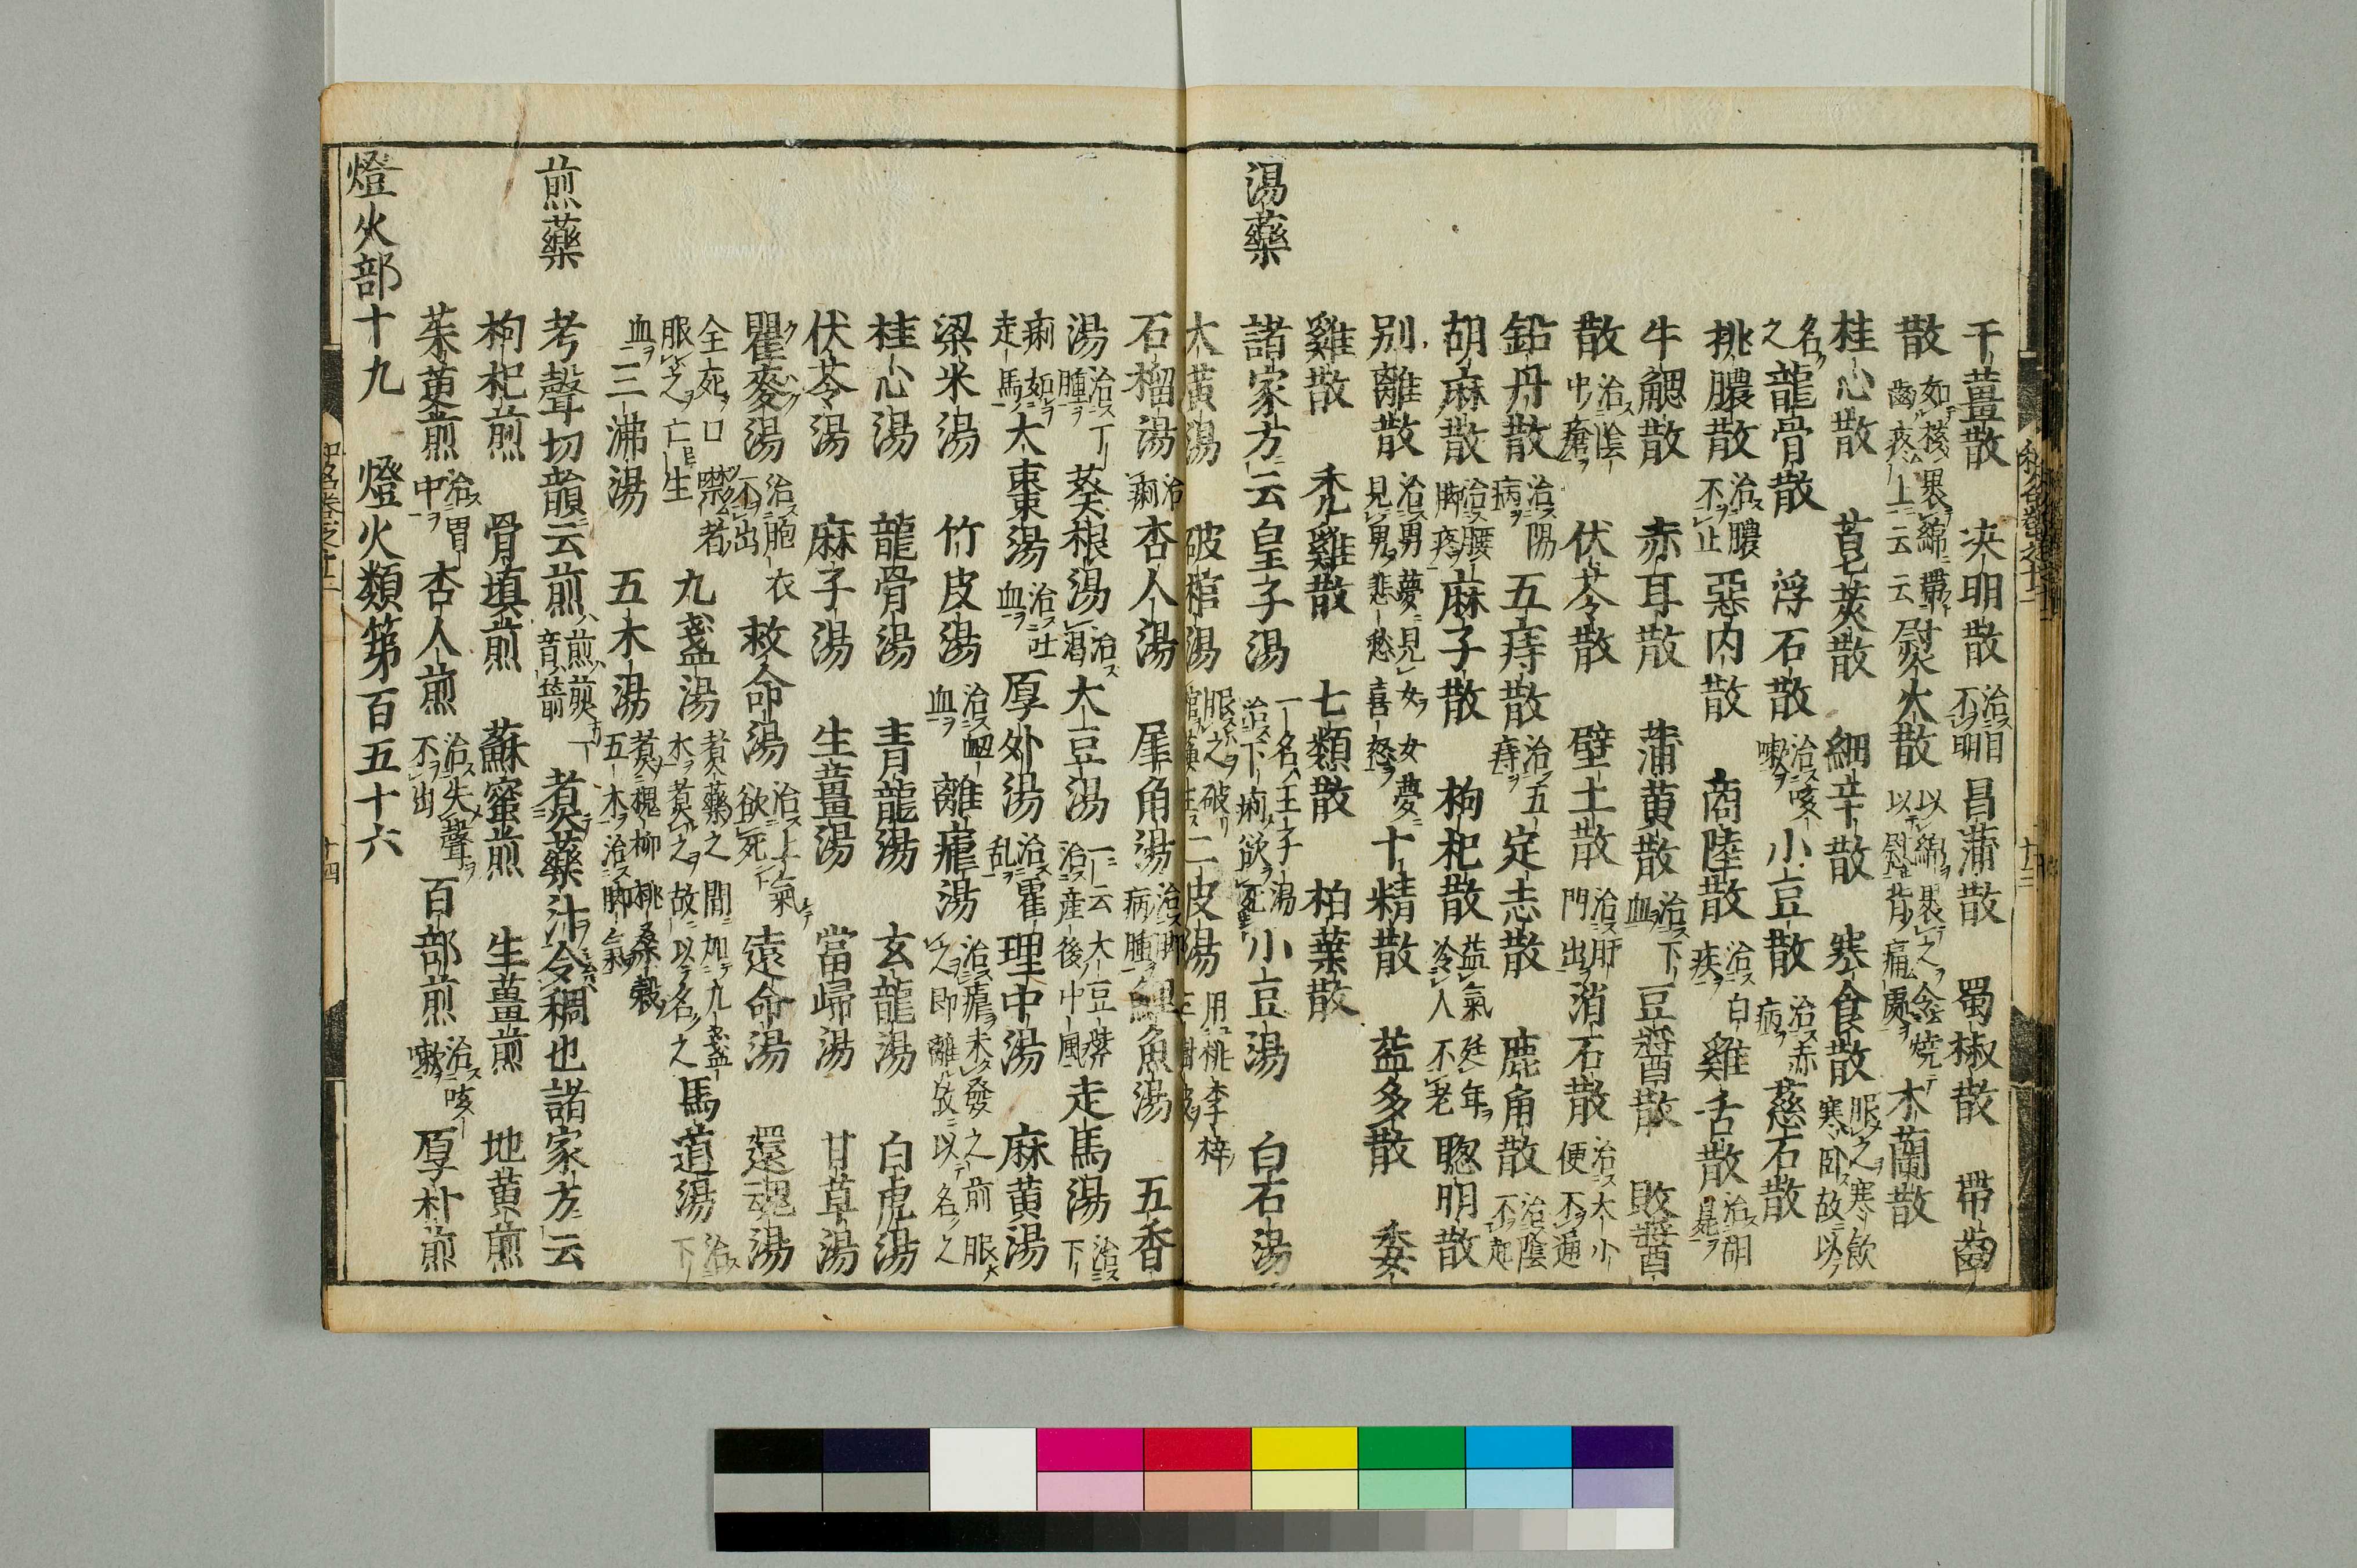 干薑散 决明散 治目不明 昌蒲散 蜀椒散 帶齒
散 如核裹綿帶齒疼上云云 慰火散 以綿裹之念燒以熨背痛處 木蘭散
桂心散 皂莢散 細辛散 寒食散 服之寒飲寒臥故以
名之 龍骨散 浮石散 治咳嗽 小豆散 治赤病 慈石散
桃膿散 治膿不止 惡肉散 商陸散 治白疾 雞舌散 治胡臭
牛䚡散 赤耳散 蒲黄散 治下血 豆醬散 敗醬
散 治陰中瘡 伏苓散 壁土散 治肝門出 消石散 治大小便不通
鉛丹散 治陽病 五痔散 治五痔 定志散 鹿角散 治陰不起
胡麻散 治腰脚疼 麻子散 枸杞散 益氣冷人 延年不老 聰明散
別離散 治男夢見女女夢見男悲愁喜怒 十精散 益多散 委
雞散 禿雞散 七類散 柏葉散
湯藥 諸家方云皇子湯 一名王子湯治下痢欲死 小豆湯 白石湯
大黄湯 破棺湯 服之破棺 二皮湯 用桃李梓
石榴湯 治痢 杏人湯 犀角湯 治脚病腫 鯉魚湯 五香
湯 治丁腫 葵根湯 治渇 大豆湯 一云大豆 治産後中風 走馬湯 治下
痢如走馬 大棗湯 治吐血 厚外湯 治霍乱 理中湯 麻黄湯
梁米湯 竹皮湯 治衂血 離瘧湯 治瘧未發之前服之即離故以名之
桂心湯 龍骨湯 青龍湯 玄龍湯 白虎湯
伏苓湯 麻子湯 生薑湯 當歸湯 甘草湯
瞿麥湯 治胞衣不出 救命湯 治上氣欲死 遠命湯 還魂湯
全死口噤者服之亡生 九盞湯 煮藥之間加九盞水煮之故以名之 馬道湯 治下
血 三沸湯 五木湯 煮槐柳桃桑穀五木治脚氣
煎藥 考聲切韻云煎 煎音箭 煮藥汁令稠也諸家方云
枸杞煎 骨填煎 蘇蜜煎 生薑煎 地黄煎
茱萸煎 治胃中 杏人煎 治失聲不出 百部煎 治咳嗽 厚朴煎
燈火部十九 燈火類第百五十六